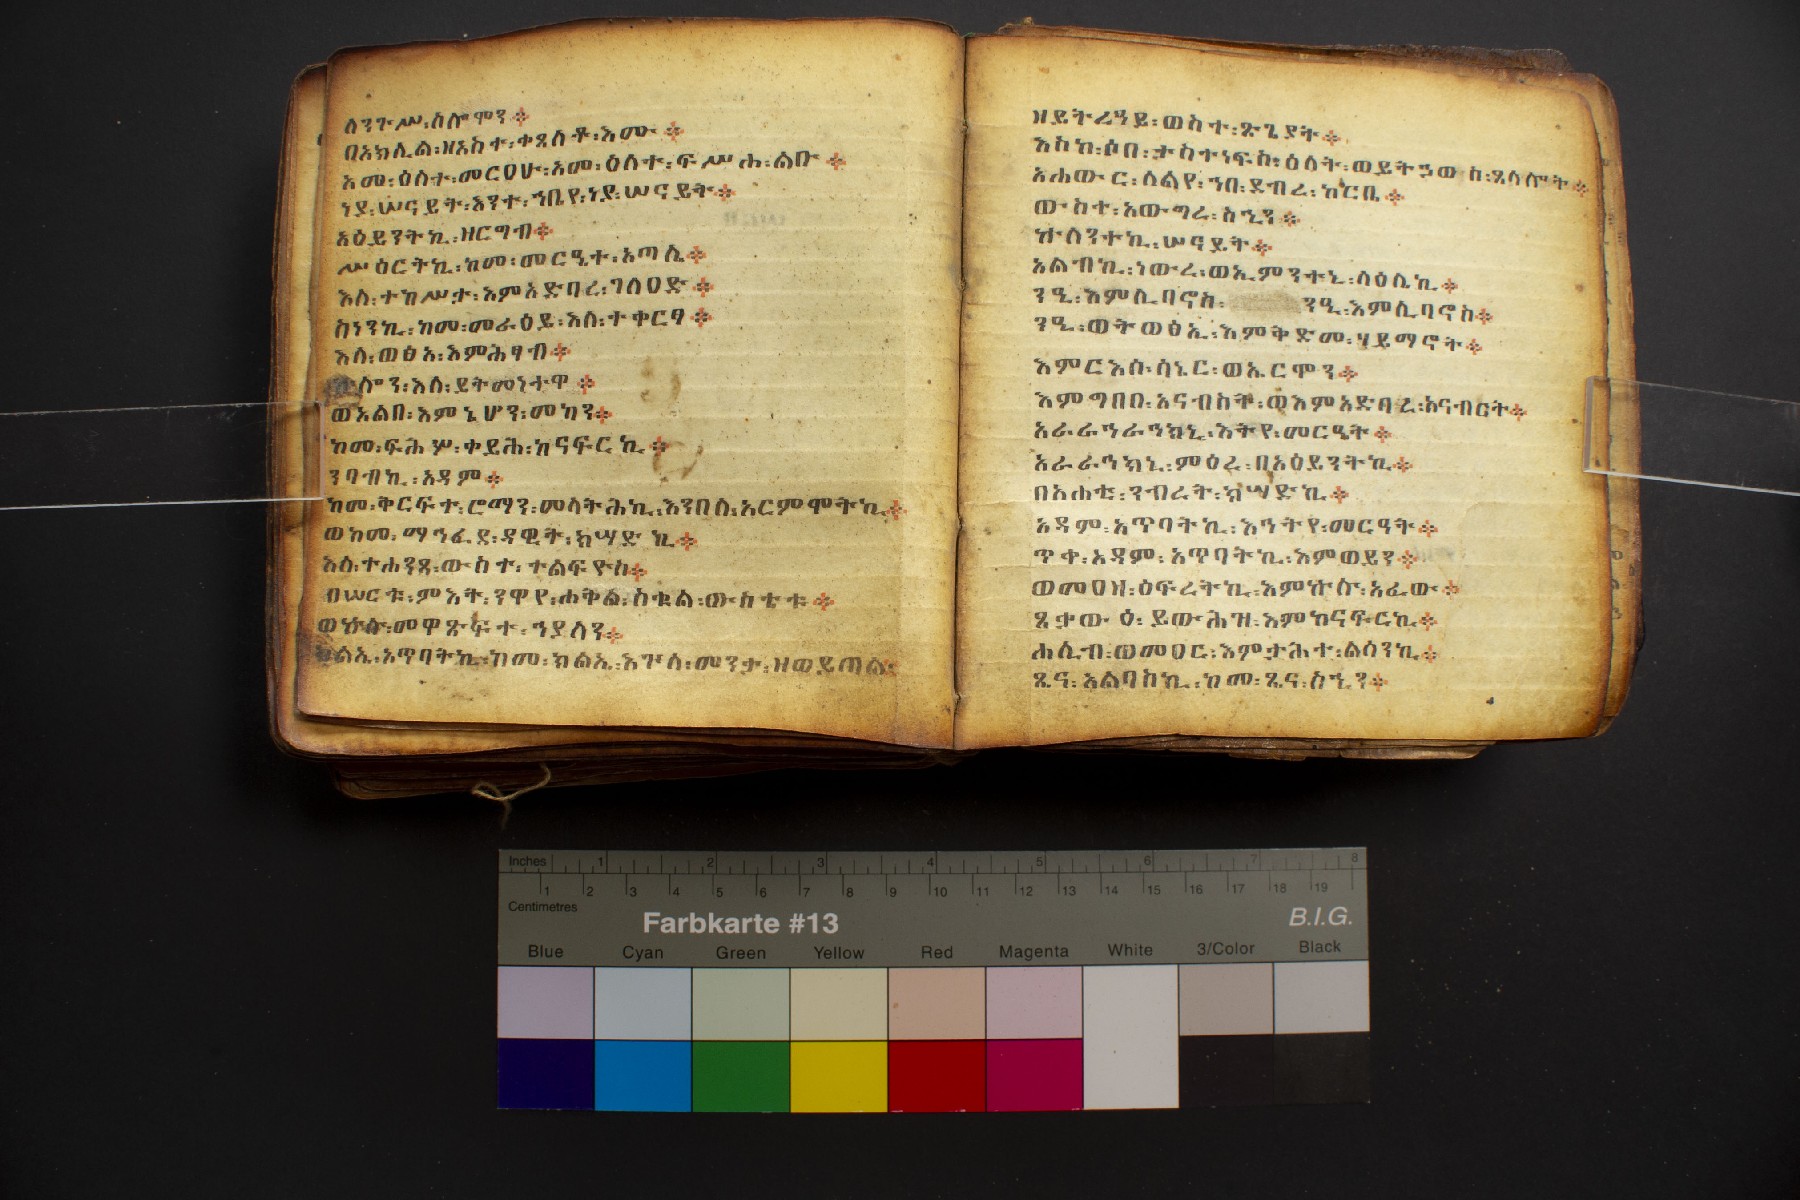 ለንጉሥ፡ሰሎሞን፨
በአክሊል፡ዘአስተ፡ቀጸለቶ፡እሙ፨
አመ፡ዕለተ፡መርዐሁ፡አመ፡ዕለተ፡ፍሥሐ፡ልቡ፨
ነያ፡ሠናይት፡እንተ፡ኀቤየ፡ነያ፡ሠናይት፨
አዕይንትኪ፡ዘርግብ፨
ሥዕርትኪ፡ከመ፡መርዔተ፡አጣሊ፨
እለ፡ተከሥታ፡እምአድባረ፡ገለዐድ፨
ስነንኪ፡ከመ፡መራዕይ፡እለ፡ተቀርፃ፨
እለ፡ወፅአ፡እምሕፃብ፨
እለ፡ይትመነተዋ፨
ወአልበ፡እምኔሆን፡መካን፨
ከመ፡ፍሕሦ፡ቀይሕ፡ከናፍርኪ፨
ንባብኪ፡አዳም፨
ከመ፡ቅርፍተ፡ሮማን፡መላትሕኪ፡እንበለ፡አርምሞትኪ፨
ወከመ፡ማኅፈደ፡ዳዊት፡ክሣድኪ፨
እለ፡ተሐንጸ፡ውስተ፡ተልፍዮስ፨
ብሠርቱ፡ምእት፡ንዋየ፡ሐቅል፡ስቁል፡ውስቴቱ፨
ወኵሉ፡መዋጽፍተ፡ኀያላን፨
ክልኤ፡አጥባትኪ፡ከመ፡ክልኤ፡እጕለ፡መንታ፡ዘወይጠል፨
ዘይትረዓይ፡ወስተ፡ጽጌያት፨
እስከ፡ሶበ፡ታስተነፍስ፡ዕለት፡ወይትኃውስ፡ጸላሎት፨
አሐውር፡ሊልየ፡ኀበ፡ደብረ፡ከርቤ፨
ውስተ፡አውግረ፡ስኂን፨
ኵለንተኪ፡ሠናይት፨
አልብኪ፡ነውረ፡ወኢምንተኒ፡ላዕሌኪ፨
ንዒ፡እምሊባኖስ፡ ንዒ፡እምሊባኖስ፨
ንዒ፡ወትወፅኢ፡እምቅድመ፡ሃይማኖት፨
እምርእሱ፡ሰኔር፡ወኤርሞን፨
እምግበበ፡አናብስት፡ወእምአድባረ፡አናብርት፨
አራራኅራኅክኒ፡እትየ፡መርዔት፨
አራራኅክኒ፡ምዕረ፡በአዕይንትኪ፨
በአሐቲ፡ንብረት፡ክሣድኪ፨
አዳም፡አጥባትኪ፡እኅትየ፡መርዓት፨
ጥቀ፡አዳም፡አጥባትኪ፡እምወይን፨
ወመዐዘ፡ዕፍረትኪ፡እምኵሉ፡አፈው፨
ጸቃውዕ፡ይውሕዝ፡እምከናፍርኪ፨
ሐሊብ፡ወመዐር፡እምታሕተ፡ልሳንኪ፨
ጼና፡አልባስኪ፡ከመ፡ጼና፡ስኂን፨
Inches 1 2 3 4 5 6 7 8
1 2 3 4 5 6 7 8 9 10 11 12 13 14 15 16 17 18 19
Centimetres
Farbkarte #13
B.I.G.
Blue Cyan Green Yellow Red Magenta White 3/Color Black